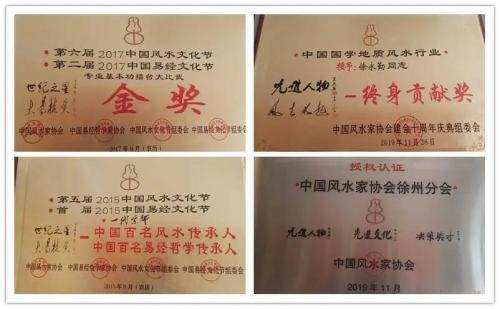 第六届2017中国风水文化节
第二届2017中国易经文化节
专业基本功擂台大比武
世纪之星
金奖
中国风水家协会 中国易经哲学家协会 中国风水文化节组委会 中国易经文化节组委会
2017年8月(农历)
中国国学地质风水行业
授予:徐永勤同志
先进人物
一终身贡献奖
中国风水家协会建会十周年庆典组委会
2019年11月28日
第五届2015中国风水文化节
首届2015中国易经文化节
一代宗师
世纪之星
中国百名风水传承人
中国百名易经哲学传承人
中国风水家协会 中国易经哲学家协会 中国风水文化节组委会 中国易经文化节组委会
2015年8月(农历)
授权认证
中国风水家协会徐州分会
先进人物 先进文化 决策英才
中国风水家协会
2019年11月